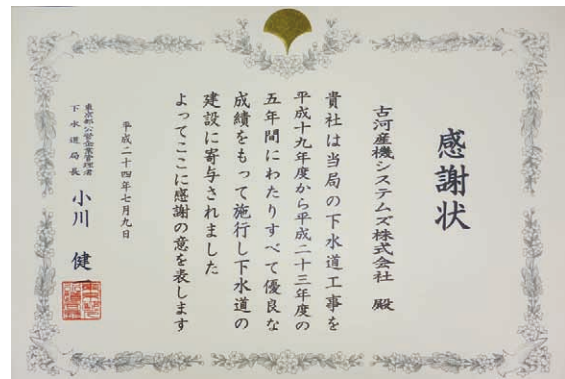 感謝状
古河産機システムズ株式会社 殿
貴社は当局の下水道工事を
平成十九年度から平成二十三年度の
五年間にわたりすべて優良な
成績をもって施行し下水道の
建設に寄与されました
よってここに感謝の意を表します
平成二十四年七月九日
東京都公営企業管理者
下水道局長 小川 健